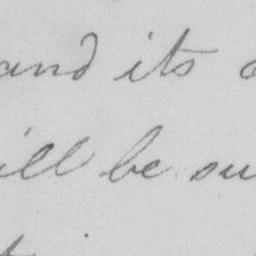 and its
ill be su